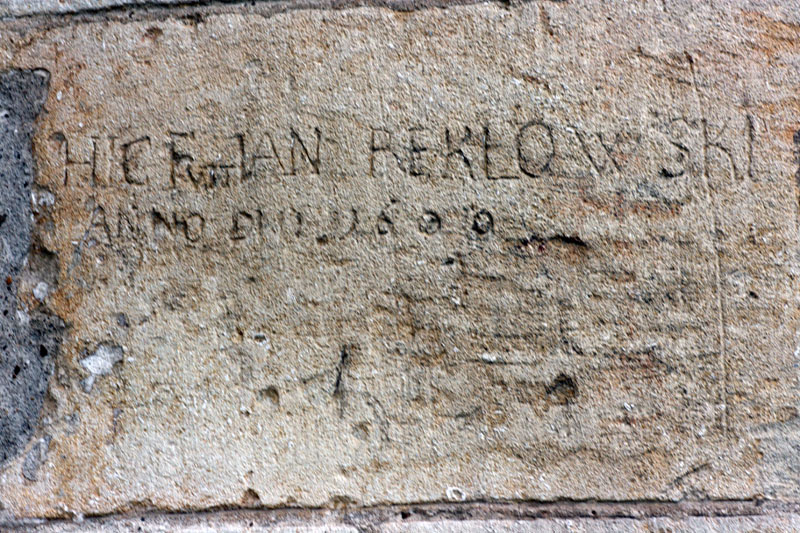 HIC FUIT IAN REKŁOWSKI
ANNO DNI 1600